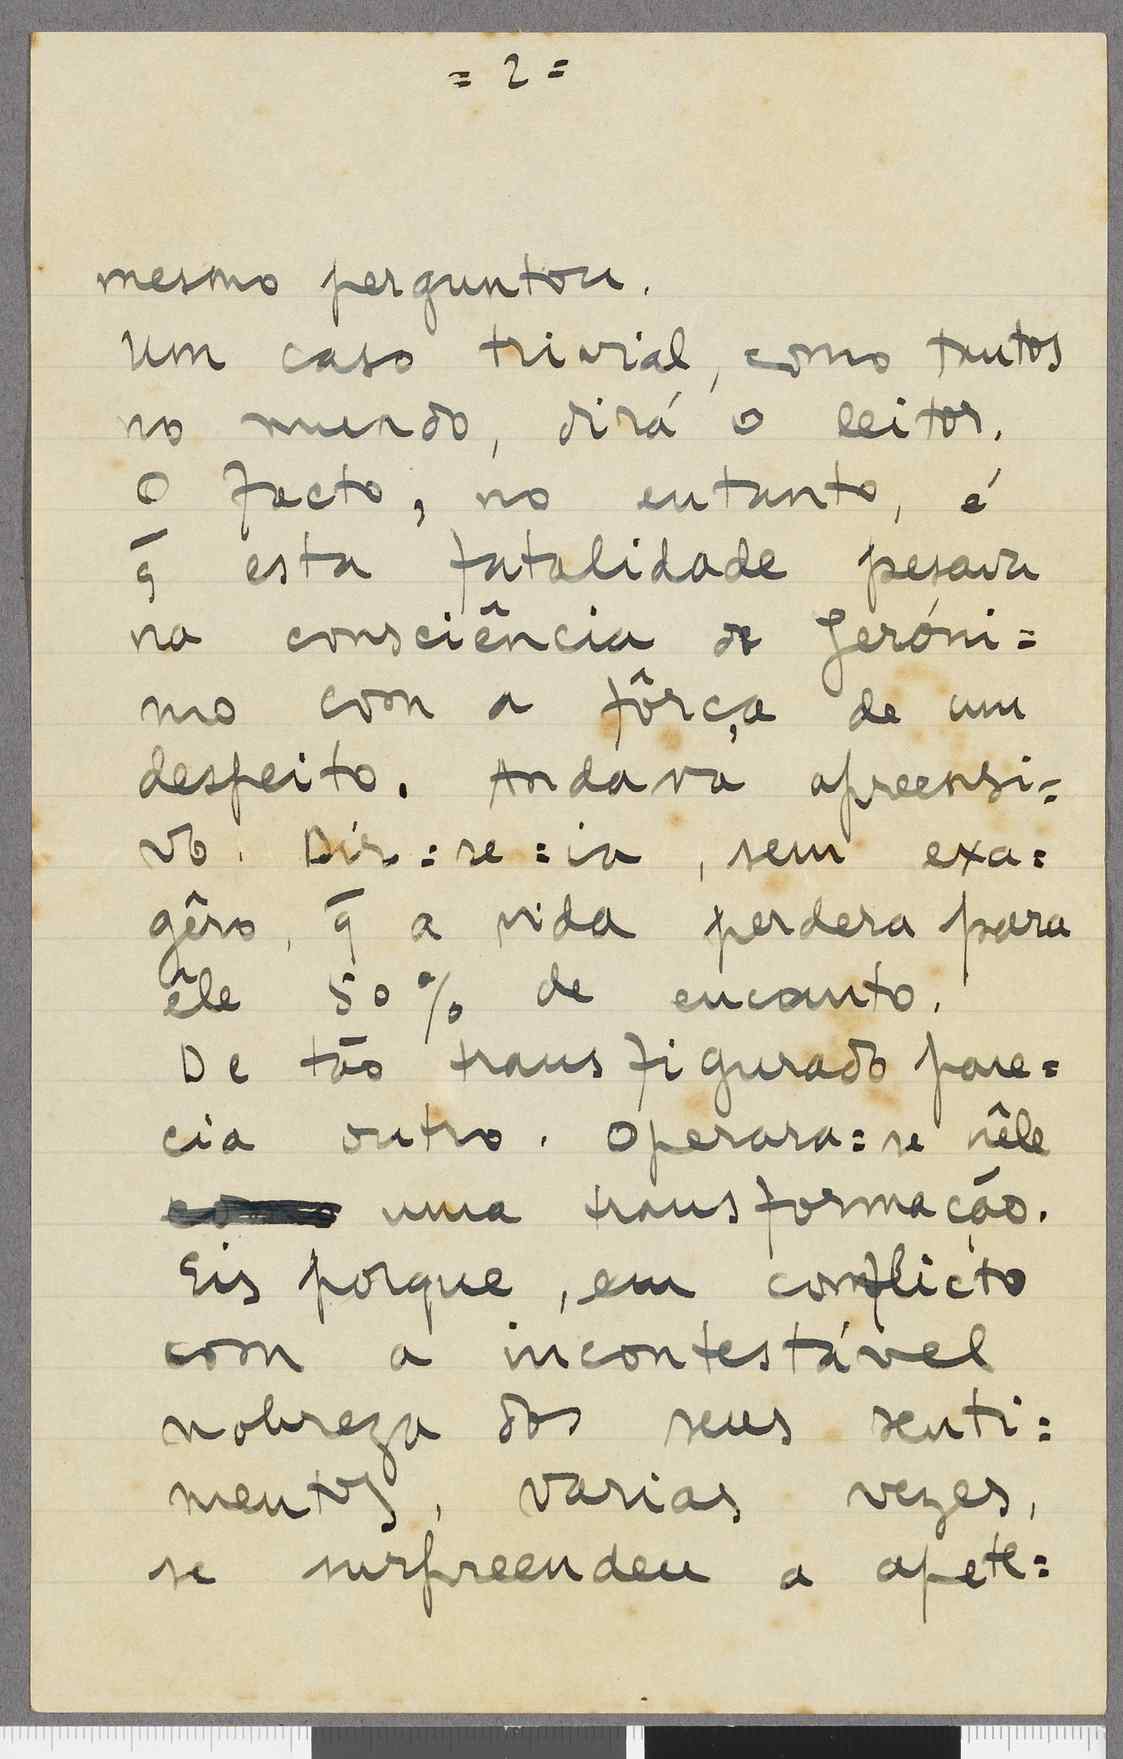 = 2 =
mesmo perguntou.
Um caso trivial, como tantos
no mundo, dirá o leitor.
O facto, no entanto, é
q̄ esta fatalidade pesava
na consciência de Jeróni=
mo com a fôrça de um
despeito. Andava apreensi=
vo. Dir=se=ia, sem exa=
gêro, q̄ a vida perdera para
êle 50% de encanto.
De tão transfigurado pare=
cia outro. Operara=se nêle
como uma transformação.
Eis porque, em conflicto
com a incontestável
nobreza dos seus senti=
mentos, varias vezes,
se surpreendeu a apete=